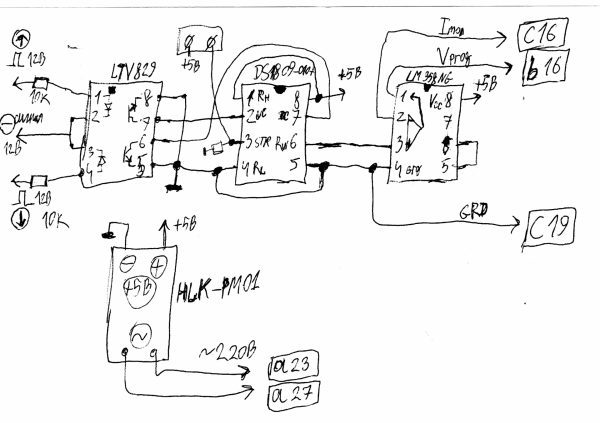 Iмом
C16
Vprog
b16
LTV829
+5В
DS1809-010+
+5В
LM358NG
+5В
12В
10К
1
2
3
4
8
7
6
5
12В
12В
10К
1 RH
2 UC
3 STR
4 RL
8
7 DC
RW 6
5
1
2
3
4 GND
Vcc 8
7
6
5
GRD
C19
+5В
+5В
HLK-PM01
~
~220В
a23
a27